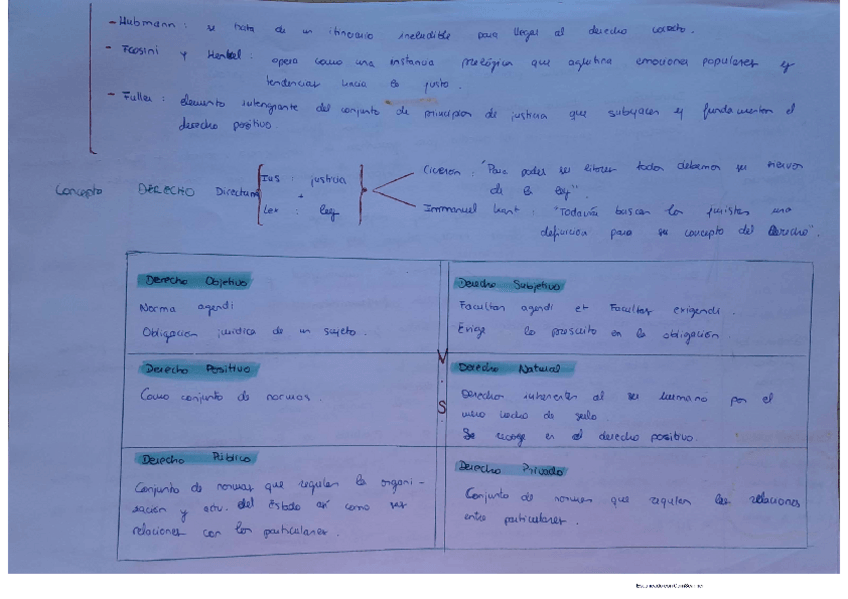 - Hubmann : se trata de un itinerario ineludible para llegar al derecho correcto.
- Fassini y Henkel : opera como una instancia prelógica que aglutina emociones populares y
tendencias hacia lo justo.
- Fuller : elemento integrante del conjunto de principios de justicia que subyacen y fundamentan el
derecho positivo.
Concepto DERECHO Directum
Ius : justicia
+
Lex : ley
Cicerón : "Para poder ser libres todos debemos ser siervos
de la ley".
Immanuel Kant : "Todavía buscan los juristas una
definición para su concepto del Derecho".
Derecho Objetivo
Norma agendi
Obligación jurídica de un sujeto.
Derecho Subjetivo
Facultas agendi et Facultas exigendi.
Exige lo prescrito en la obligación.
V.S
Derecho Positivo
Como conjunto de normas.
Derecho Natural
Derechos inherentes al ser humano por el
mero hecho de serlo.
Se recoge en el derecho positivo.
Derecho Público
Conjunto de normas que regulan la organi-
zación y actv. del Estado así como sus
relaciones con los particulares.
Derecho Privado
Conjunto de normas que regulan las relaciones
entre particulares.
Escaneado con CamScanner